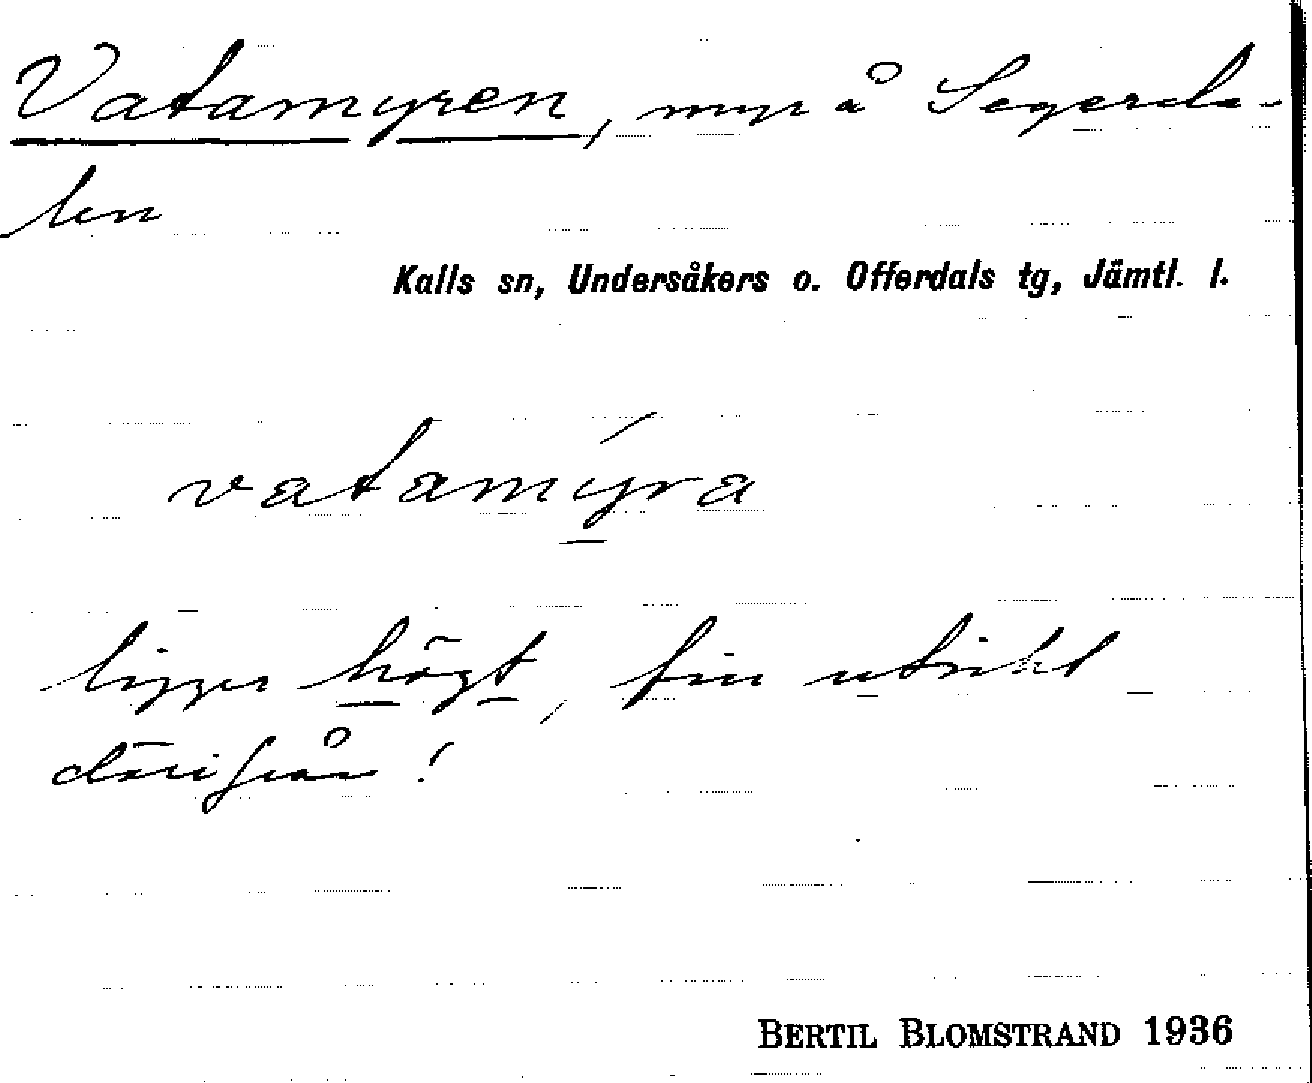 Vatamyren, myr å Segerda-
len
Kalls sn, Undersåkers o. Offerdals tg, Jämtl. l.
vatamýra
ligger högt, fin utsikt
därifrån!
BERTIL BLOMSTRAND 1936